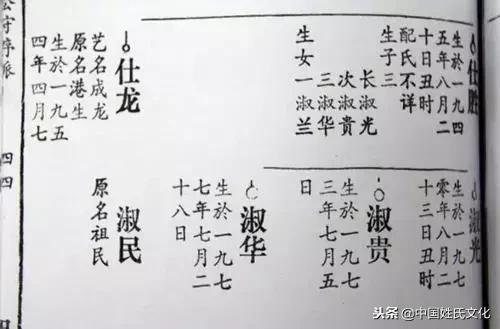 仕胜
生於一九四
五年八月二
十日丑时
配氏不详
生子三
长淑光
次淑贵
三淑华
生女一淑兰
仕龙
艺名成龙
原名港生
生於一九五
四年四月七
淑光
生於一九七
零年八月二
十三日丑时
淑贵
生於一九七
三年七月五
日
淑华
生於一九七
七年七月二
十八日
淑民
原名祖民
公守序派
四四
头条@中国姓氏文化